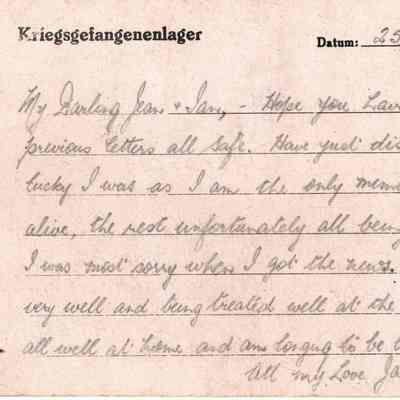 Kriegsgefangenenlager
Datum: 25
My Darling Jean & Ian, - Hope you have
previous letters all safe. Have just dis
lucky I was as I am the only mem
alive, the rest unfortunately all being
I was most sorry when I got the news.
very well and being treated well at the
all well at home and am longing to be
All my Love Ja